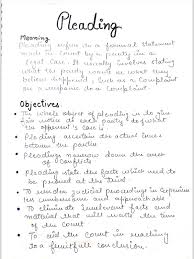 Pleading
Meaning
Pleading refers to a formal statement
made in court by a party in a
legal case. It usually involves stating
what the party wants or what they
believe happened, such as a complaint
or a response to a complaint.
Objectives
The whole object of pleading is to give
fair notice to each party of what
the opponent's case is.
Pleading ascertain the actual issues
between parties
Pleading narrow down the area
of conflicts
Pleading state the facts which need
to be proved at the trial
To render judicial proceeding
and approachable
To eliminate irrelevant facts and
material that will waste the time
of the court
To aid the Court in reaching
to a fruitfull conclusion.